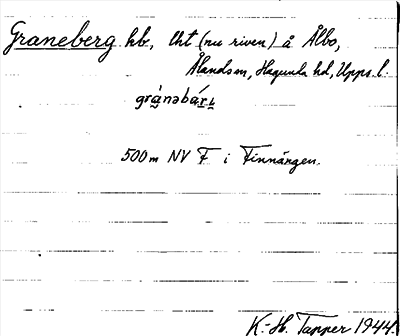 Graneberg hb, lht (nu riven) å Ålbo,
Ålands sn, Hagunda hd, Upps. l.
gránəbár̲i̲
500 m NV F i Finnängen.
K.-H. Tapper 1944.